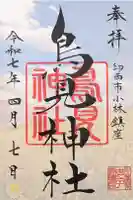 奉拝
印西市小林鎮座
鳥見神社
鳥見
神社
令和七年四月七日